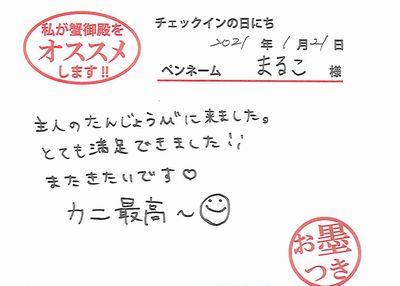 私が蟹御殿を
オススメ
します!!
チェックインの日にち
2021年1月21日
ペンネーム まるこ 様
主人のたんじょうびに来ました。
とても満足できました!!
またきたいです♡
カニ最高〜☺
お墨
つき